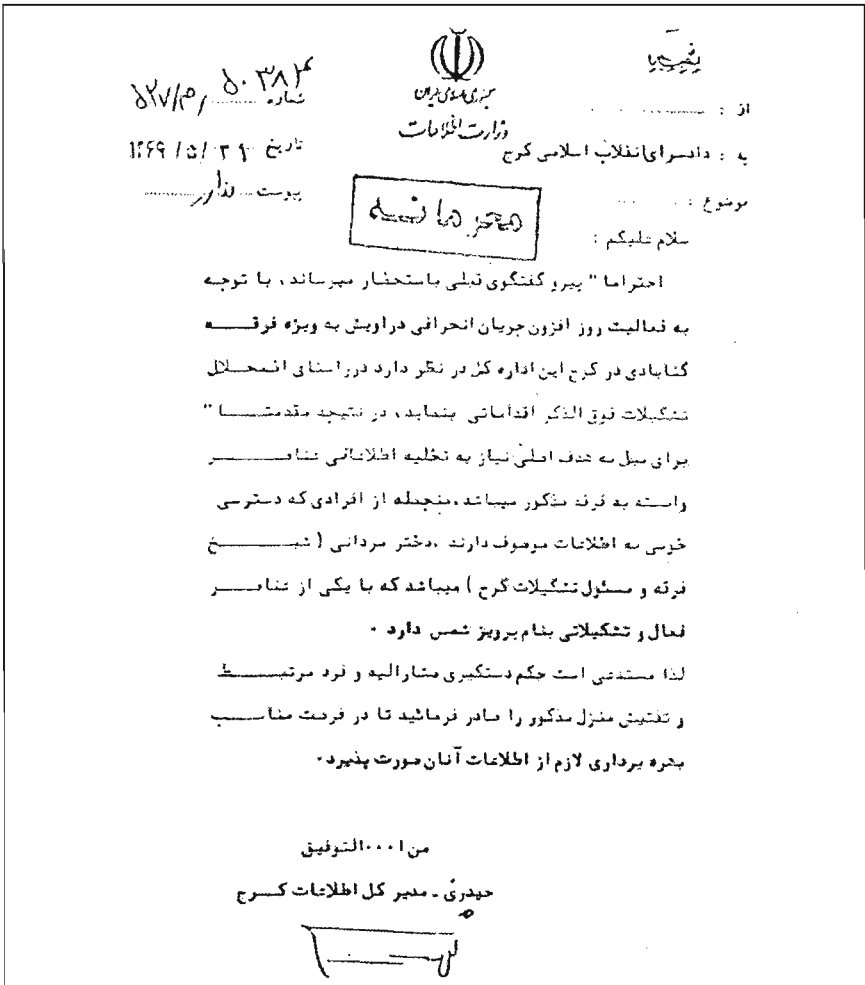 بسمه تعالی
جمهوری اسلامی ایران
وزارت اطلاعات
شماره ۵۰۳۸۴/م/۵۲۷
تاریخ ۱۳۶۹/۵/۲۹
پیوست ندارد
از :
به : دادسرای انقلاب اسلامی کرج
موضوع :
محرمانه
سلام علیکم :
احتراما " پیرو گفتگوی قبلی باستحضار میرساند ، با توجه
به فعالیت روز افزون جریان انحرافی دراویش به ویژه فرقه
گنابادی در کرج این اداره کل در نظر دارد در راستای انمحلال
تشکیلات فوق الذکر اقداماتی بنماید ، در نتیجه مقدمتا "
برای میل به هدف اصلی نیاز به تخلیه اطلاعاتی عناصر
وابسته به فرقه مذکور میباشد ،منجمله از افرادی که دسترسی
خوبی به اطلاعات موصوف دارند ،دختر مردانی ( شیخ
فرقه و مسئول تشکیلات کرج ) میباشد که با یکی از عناصر
فعال و تشکیلاتی بنام پرویز شمس دارد .
لذا مستدعی است حکم دستگیری مشارالیه و فرد مرتبط
و تفتیش منزل مذکور را صادر فرمائید تا در فرصت مناسب
بهره برداری لازم از اطلاعات آنان صورت پذیرد .
من ا... التوفیق
حیدری - مدیر کل اطلاعات کرج